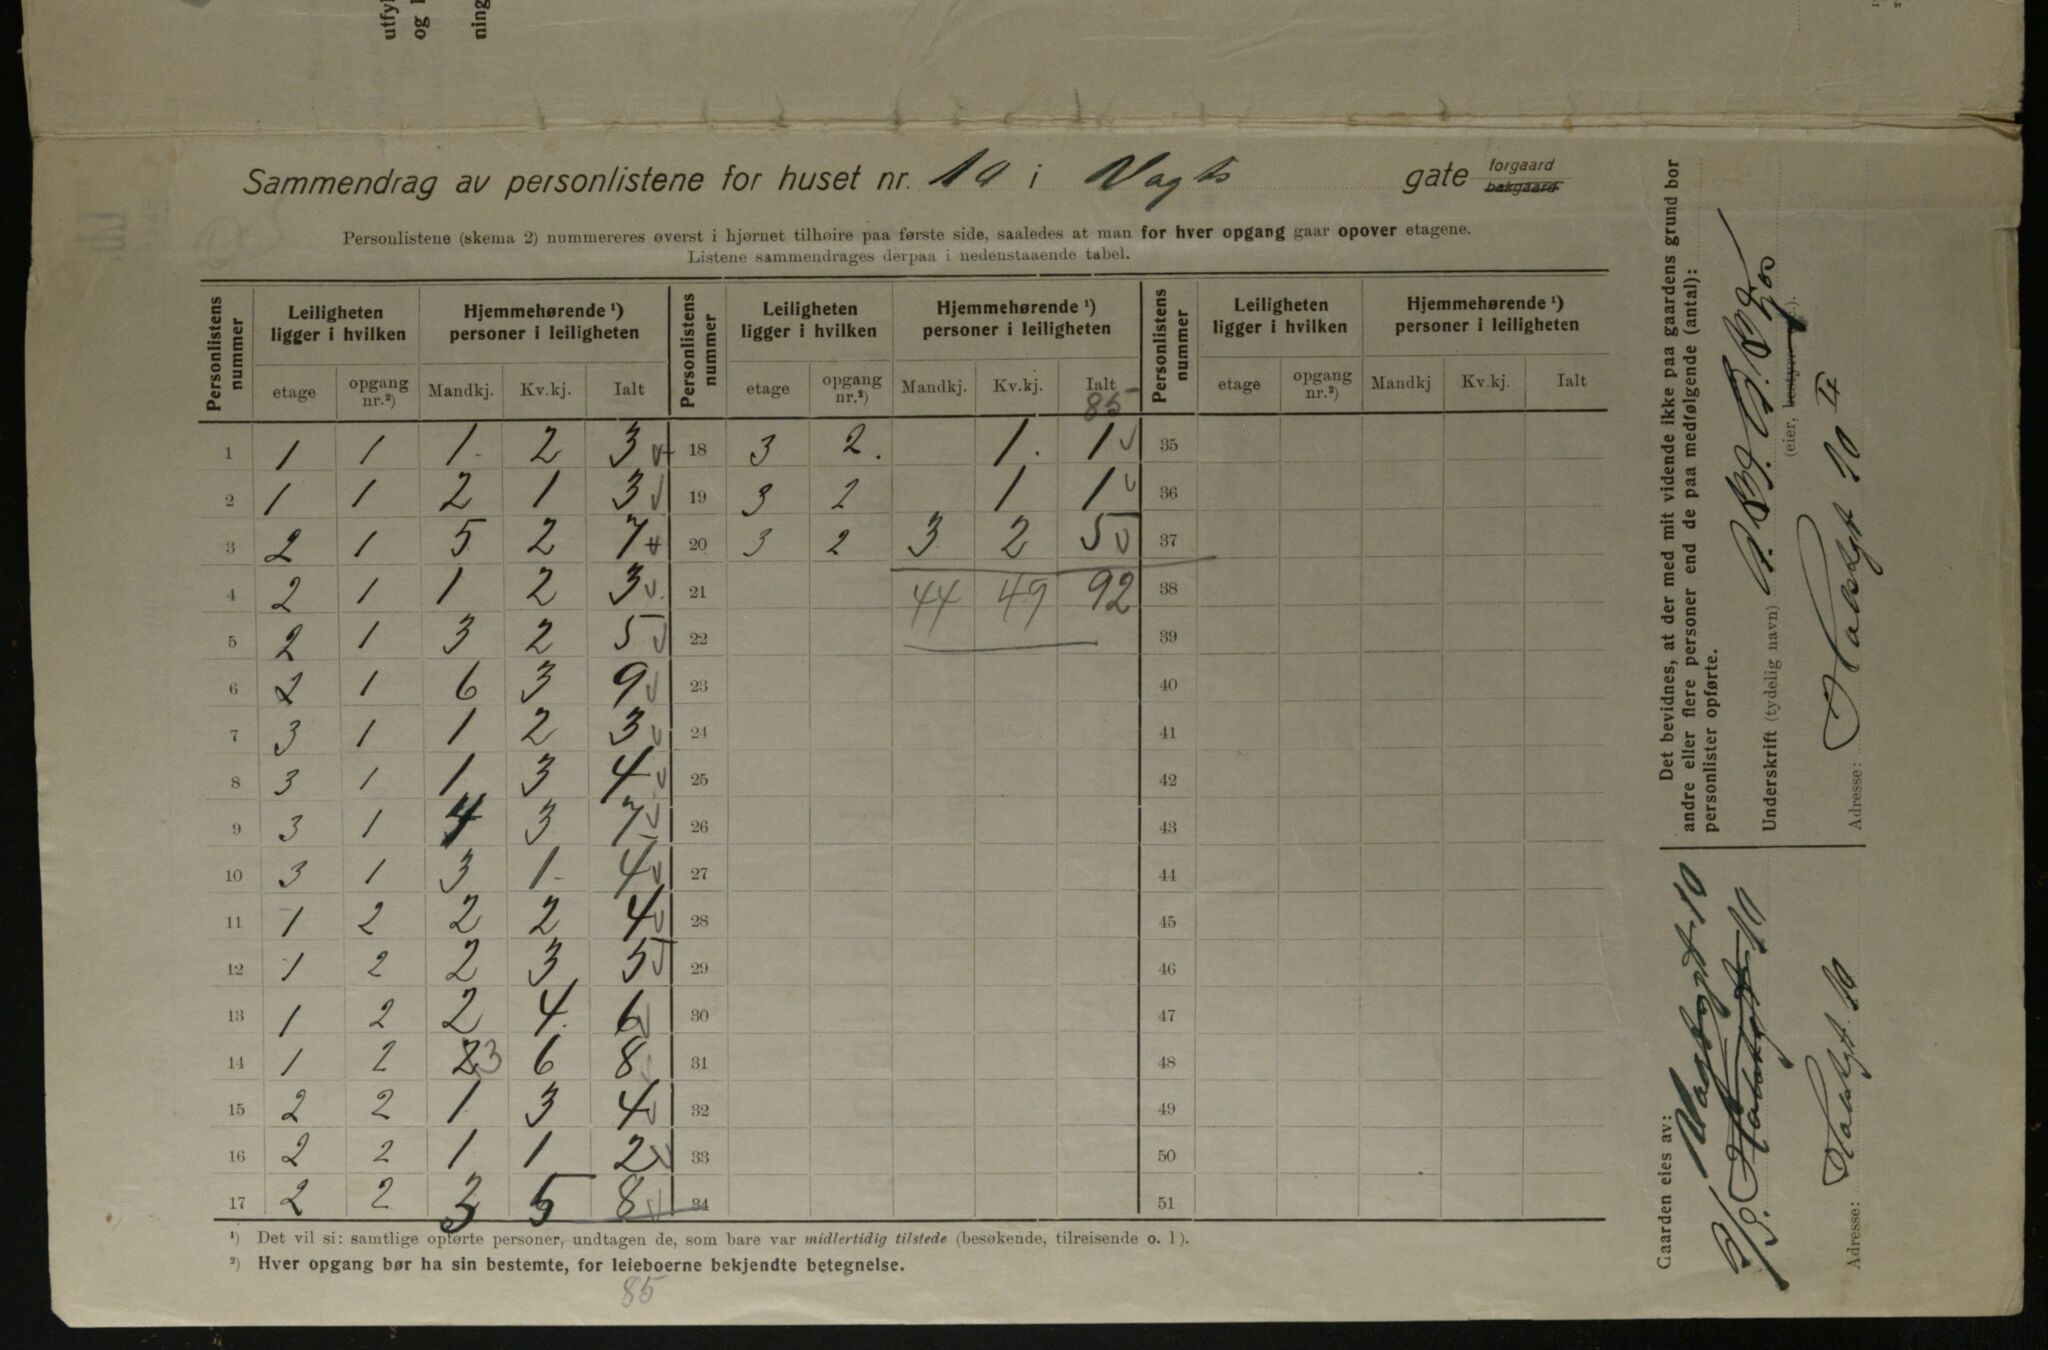 utfyl
og l
ning
Sammendrag av personlistene for huset nr. 10 i Vagts gate forgaard
bakgaard
Personlistene (skema 2) nummereres øverst i hjørnet tilhøire paa første side, saaledes at man for hver opgang gaar opover etagene.
Listene sammendrages derpaa i nedenstaaende tabel.
Personlistens nummer | Leiligheten ligger i hvilken | Hjemmehørende ¹) personer i leiligheten | Personlistens nummer | Leiligheten ligger i hvilken | Hjemmehørende ¹) personer i leiligheten | Personlistens nummer | Leiligheten ligger i hvilken | Hjemmehørende ¹) personer i leiligheten
etage | opgang nr.²) | Mandkj. | Kv.kj. | Ialt | etage | opgang nr.²) | Mandkj. | Kv.kj. | Ialt | etage | opgang nr.²) | Mandkj | Kv.kj. | Ialt
85
1 | 1 | 1 | 1 | 2 | 3 | 18 | 3 | 2. | | 1. | 1 | 35
2 | 1 | 1 | 2 | 1 | 3 | 19 | 3 | 2 | | 1 | 1 | 36
3 | 2 | 1 | 5 | 2 | 7 | 20 | 3 | 2 | 3 | 2 | 5 | 37
4 | 2 | 1 | 1 | 2 | 3 | 21 | | | 44 | 49 | 92 | 38
5 | 2 | 1 | 3 | 2 | 5 | 22 | 39
6 | 2 | 1 | 6 | 3 | 9 | 23 | 40
7 | 3 | 1 | 1 | 2 | 3 | 24 | 41
8 | 3 | 1 | 1 | 3 | 4 | 25 | 42
9 | 3 | 1 | 4 | 3 | 7 | 26 | 43
10 | 3 | 1 | 3 | 1 | 4 | 27 | 44
11 | 1 | 2 | 2 | 2 | 4 | 28 | 45
12 | 1 | 2 | 2 | 3 | 5 | 29 | 46
13 | 1 | 2 | 2 | 4. | 6 | 30 | 47
14 | 1 | 2 | 2 3 | 6 | 8 | 31 | 48
15 | 2 | 2 | 1 | 3 | 4 | 32 | 49
16 | 2 | 2 | 1 | 1 | 2 | 33 | 50
17 | 2 | 2 | 3 | 5 | 8 | 34 | 51
¹) Det vil si: samtlige opførte personer, undtagen de, som bare var midlertidig tilstede (besøkende, tilreisende o. l).
²) Hver opgang bør ha sin bestemte, for leieboerne bekjendte betegnelse.
85
Det bevidnes, at der med mit vidende ikke paa gaardens grund bor
andre eller flere personer end de paa medfølgende (antal):
personlister opførte.
Underskrift (tydelig navn)
(eier,
Adresse: 10 II
Gaarden eies av: Vagtsgt 10
10
Adresse: 10